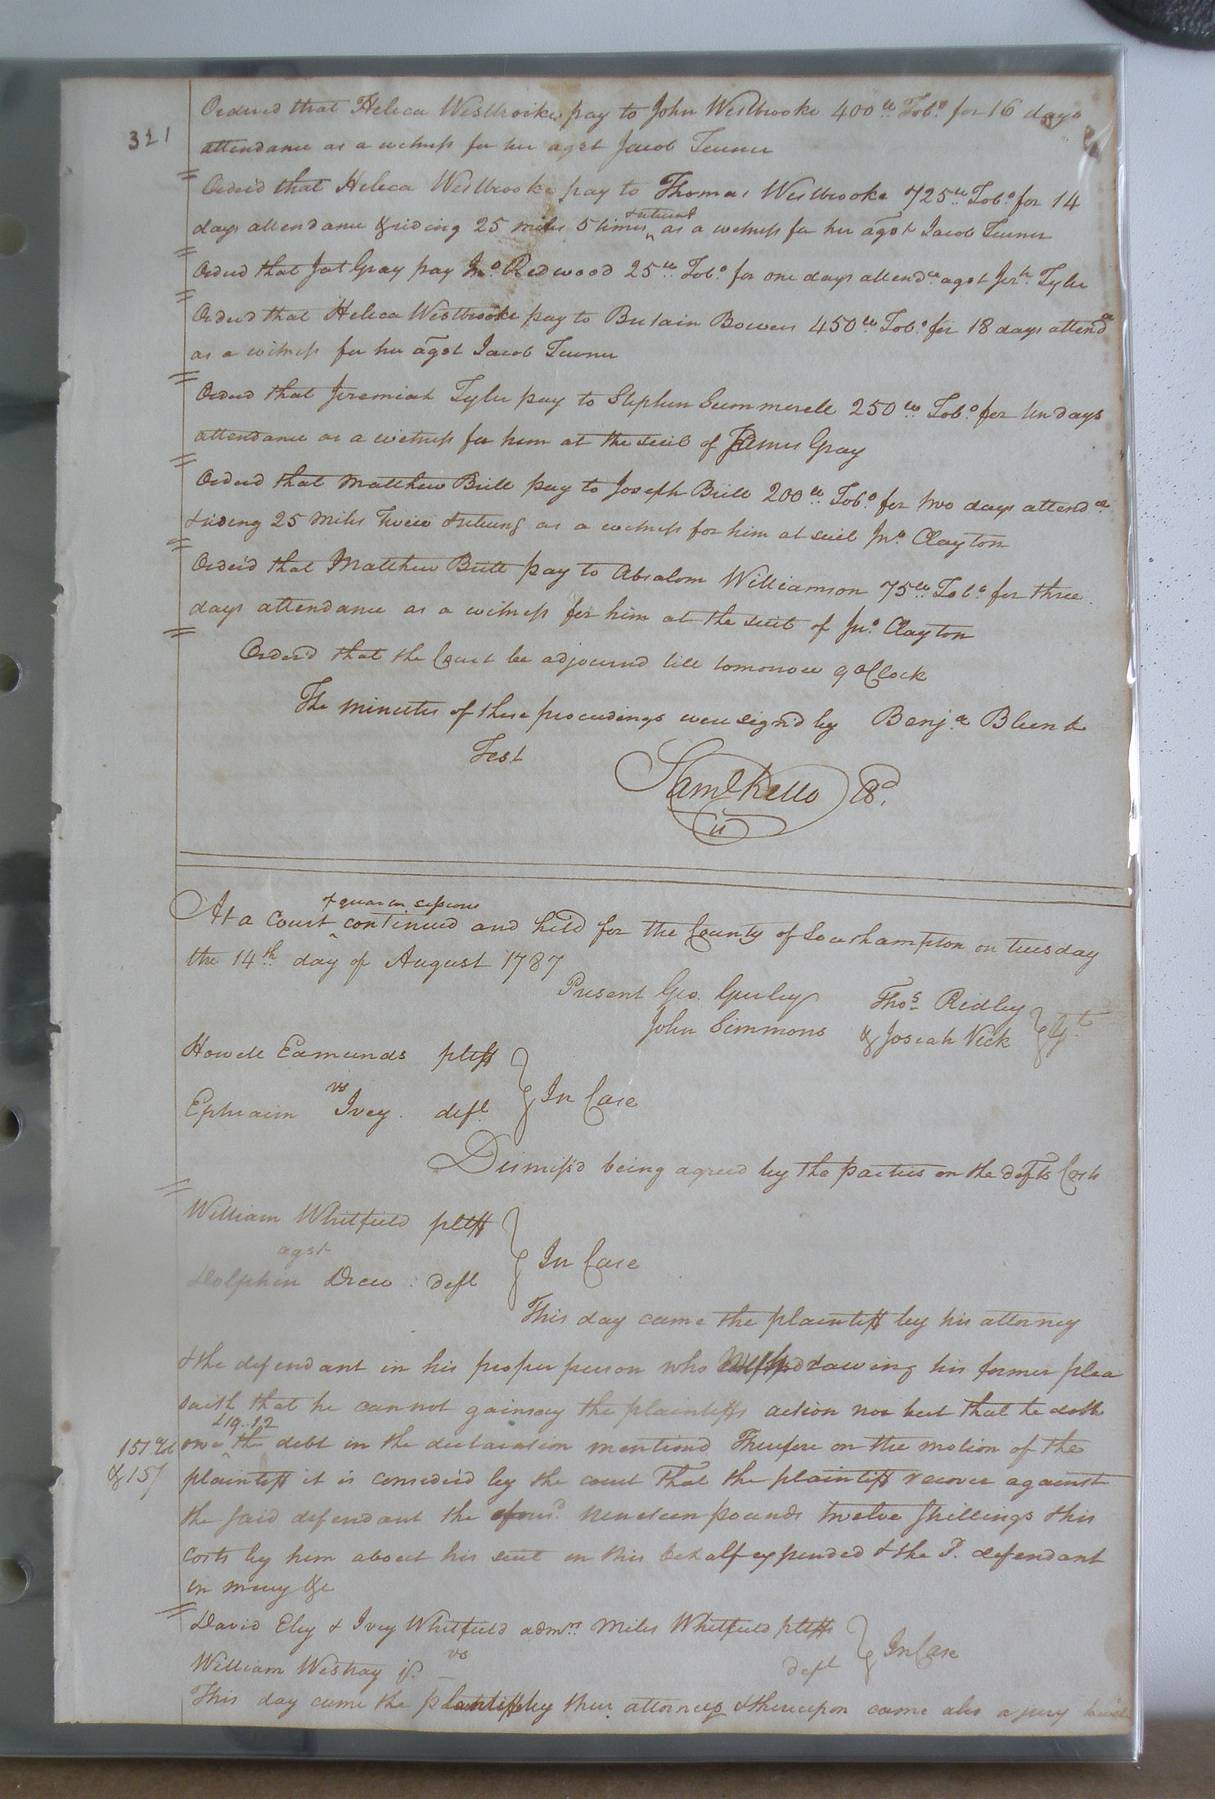 321
Ordered that Heleca Westbrooke pay to John Westbrooke 400 lb Tobo. for 16 days
attendance as a witness for her agst Jacob Turner
Order'd that Heleca Westbrooke pay to Thomas Westbrooke 725 lb Tobo. for 14
days attendance & riding 25 miles 5 times & returns as a witness for her agst Jacob Turner
Orderd that Jas Gray pay Jno. Redwood 25 lb Tobo. for one days attendce agst Jerh. Tyler
Orderd that Heleca Westbrooke pay to Britain Bowers 450 lb Tobo. for 18 days attendce
as a witness for her agst Jacob Turner
Orderd that Jeremiah Tyler pay to Stephen Summerell 250 lb Tobo. for ten days
attendance as a witness for him at the suit of James Gray
Orderd that Matthew Britt pay to Joseph Britt 200 lb Tobo. for two days attendce
& riding 25 miles Twice & returng as a witness for him at suit Jno. Clayton
Order'd that Matthew Britt pay to Absalom Williamson 75 lb Tobo. for three
days attendance as a witness for him at the suit of Jno. Clayton
Order'd that the Court be adjournd till tomorrow 9 oClock
The minutes of these proceedings were signd by Benja Blunt
Test
Saml Kello Cl.
& quarter sessions
At a Court continued and held for the County of Southampton on tuesday
the 14th day of August 1787
Present Geo. Gurley Thos Ridley
John Simmons & Josiah Vick } Gt
Howell Edmunds pltff
vs } In Case
Ephraim Ivey. deft
Dismiss'd being agreed by the parties on the defts Costs
William Whitfield pltff
agst } In Case
Dolphin Drew deft
This day came the plaintiff by his attorney
& the defendant in his proper person who Withdrawing his former plea
saith that he cannot gainsay the plaintiffs action nor but that he doth
£19..12
owe the debt in the declaration mentiond Therefore on the motion of the
& 15/
plaintiff it is consider'd by the court That the plaintiff recover against
the said defendant the nineteen pounds twelve shillings & his
costs by him about his suit in this behalf expended & the Sd. defendant
in mercy &c
David Eley & Ivey Whitfield admrs Miles Whitfield pltffs
vs } In Case
William Westray deft
This day came the plaintiffs by their attorneys & thereupon came also a jury